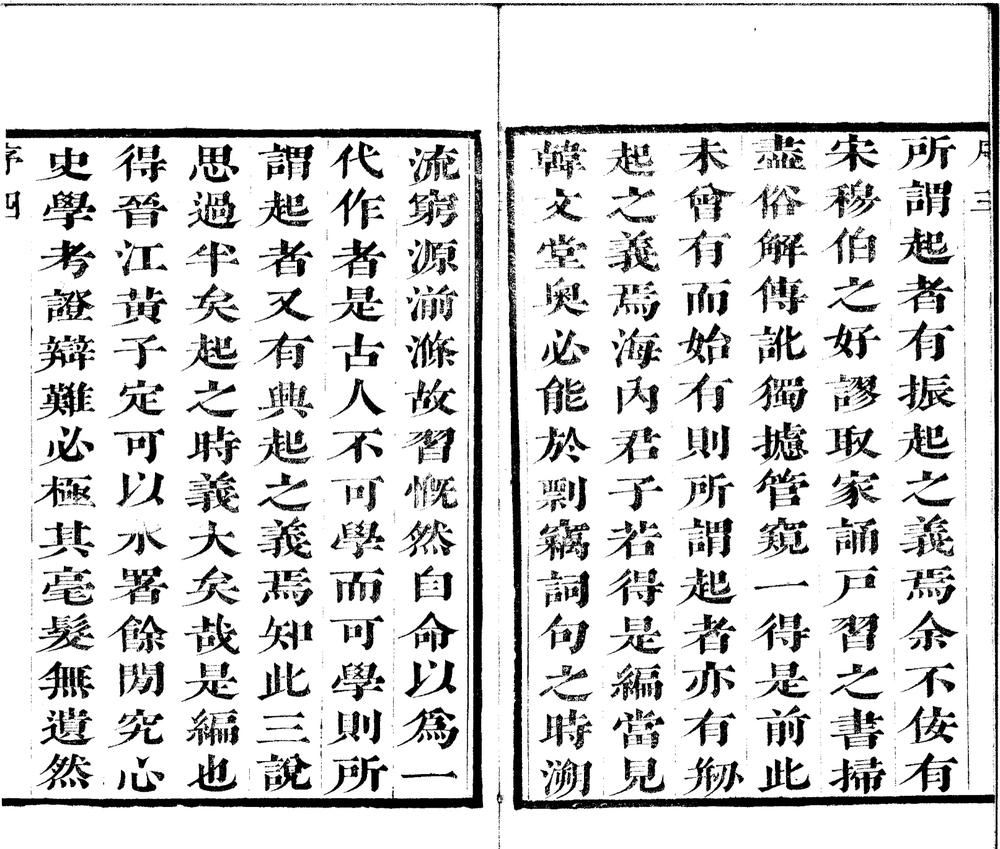 序三
所謂起者有振起之義焉余不佞有
宋穆伯之好謬取家誦戸習之書掃
盡俗解傳訛獨攄管窺一得是前此
未曾有而始有則所謂起者亦有剏
起之義焉海內君子若得是編當見
韓文堂奥必能於剽竊詞句之時溯
流窮源湔滌故習慨然自命以爲一
代作者是古人不可學而可學則所
謂起者又有興起之義焉知此三說
思過半矣起之時義大矣哉是編也
得晉江黃子定可以水署餘閒究心
史學考證辯難必極其毫髮無遺然
序四